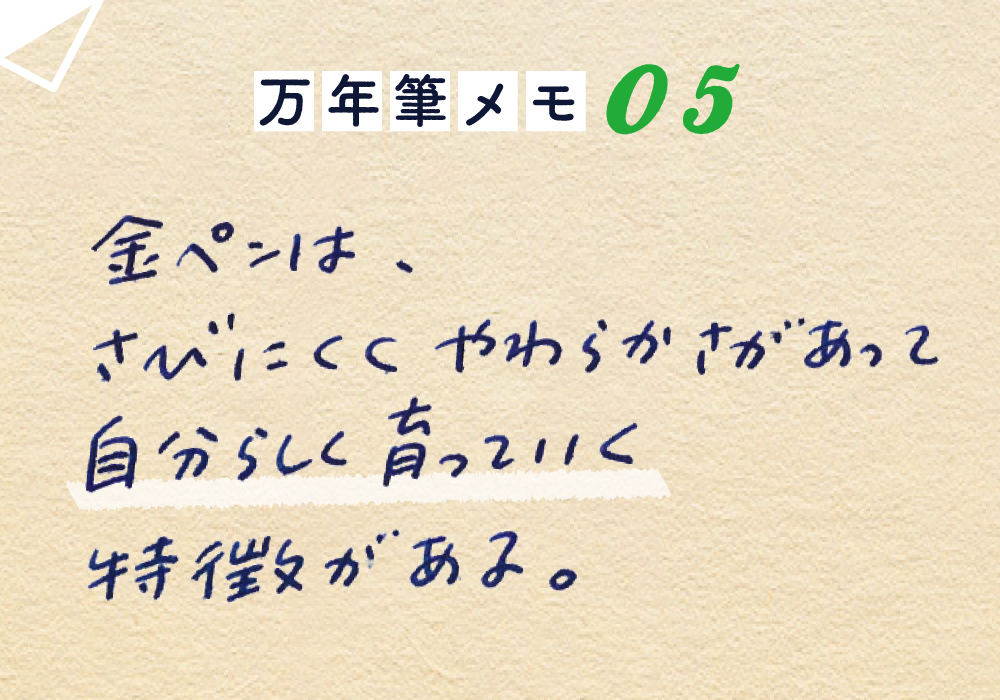 万年筆メモ05
金ペンは、
さびにくく やわらかさがあって
自分らしく育っていく
特徴がある。